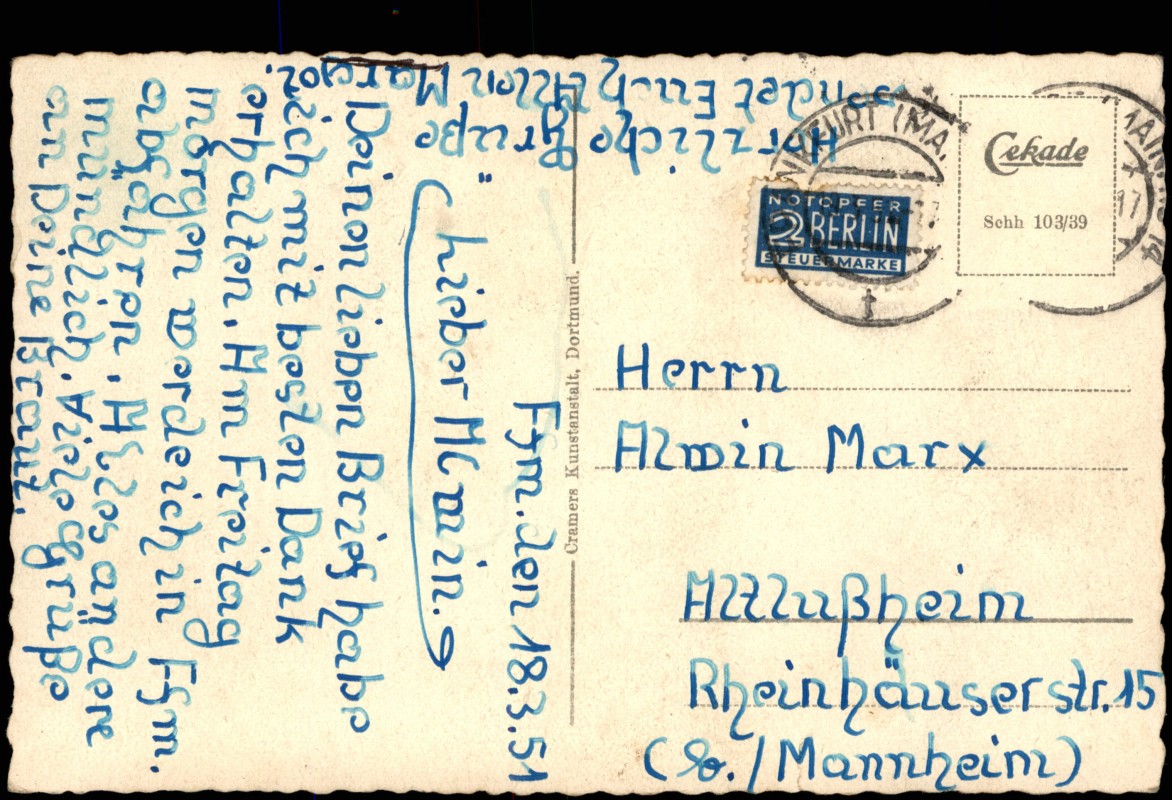 Ffm. den 18.3.51
Lieber Alwin.
Deinen lieben Brief habe
ich mit besten Dank
erhalten. Am Freitag
morgen werde ich in Ffm.
abfahren. Alles andere
mündlich. Viele Grüße
an Deine Braut.
Herzliche Grüße
sendet Euch Allen Margot
Cramers Kunstanstalt, Dortmund.
NKFURT (MA
AIN
14
17
NOTOPFER
2 BERLIN
STEUERMARKE
Cekade
Schh 103/39
Herrn
Alwin Marx
Altlußheim
Rheinhäuserstr. 15
(b./Mannheim)